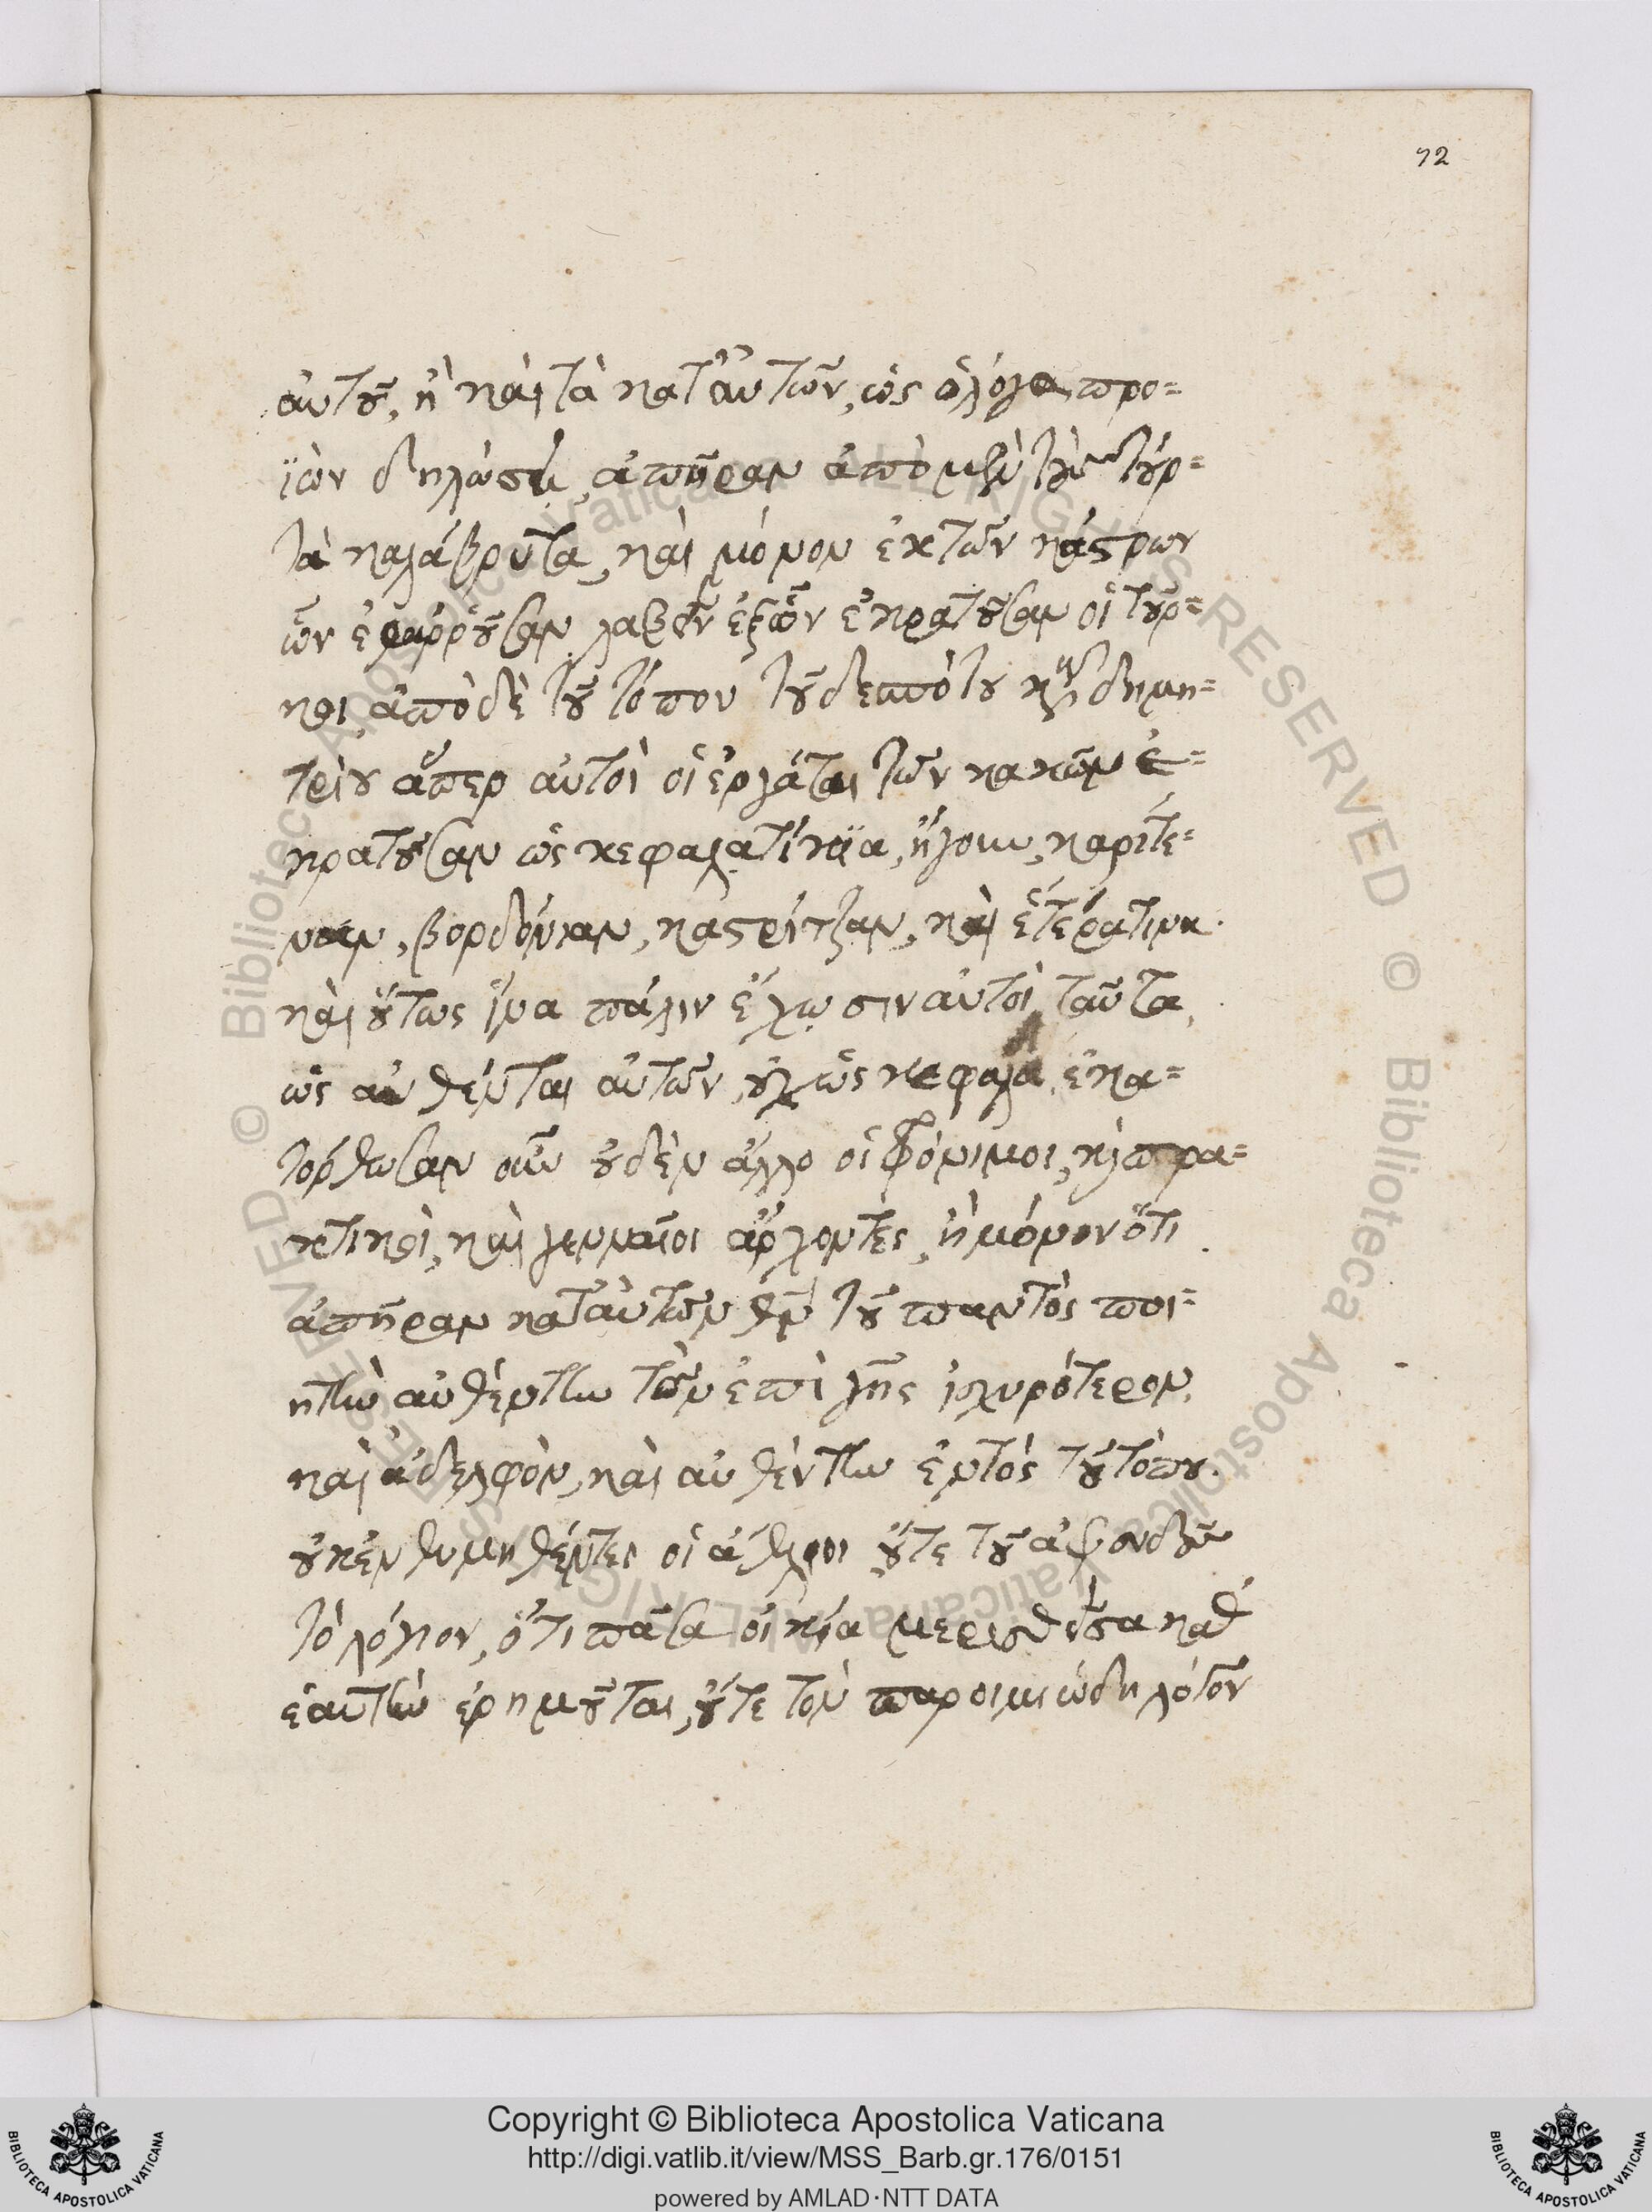 72
αὐτοῦ, ἢ καὶ τὰ κατ' αὐτῶν, ὡς ὁ λόγος προ=
ϊὼν δηλώσει, ἀπῆραν ἀπὸ μὲν τὴν τούρ=
τὰ καλάβρυτα, καὶ μόνον ἐκ τῶν κάστρων
ὧν ἐθαρροῦσαν λαβεῖν ἐξ ὧν ἐκρατοῦσαν οἱ τοῦρ=
κοι, ἀπὸ δὲ τοῦ τόπου τοῦ δεσπότου κυροῦ δημη=
τρίου ἅπερ αὐτοὶ οἱ ἐργάται τῶν κακῶν ἐ=
κρατοῦσαν ὡς κεφαλατίκια, ἤγουν, καρίτε=
ναν, βορδόνιαν, καστρίτζαν, καὶ ἕτερά τινα.
καὶ οὕτως ἵνα πάλιν ἔχωσιν αὐτοὶ ταῦτα,
ὡς αὐθένται αὐτῶν, οὐχ ὡς κεφαλαί. ἐκα=
τόρθωσαν οὖν οὐδὲν ἄλλο οἱ φρόνιμοι, καὶ πρα=
κτικοὶ, καὶ γενναῖοι ἄρχοντες, ἢ μόνον ὅτι
ἀπῆραν κατ' αὐτῶν θεὸν τοῦ παντὸς ποι=
ητὴν αὐθέντην τῶν ἐπὶ γῆς ἰσχυρότερον,
καὶ ἀδελφὸν, καὶ αὐθέντην ἐντὸς τοῦ τόπου.
οὐκ ἐνθυμηθέντες οἱ ἄθλιοι οὔτε τοῦ ἀψευδοῦς
τὸ λόγιον, ὅτι πᾶσα οἰκία μερισθεῖσα καθ'
ἑαυτὴν ἐρημοῦται, οὔτε τὸν παροιμιώδη λόγον
Copyright © Biblioteca Apostolica Vaticana
http://digi.vatlib.it/view/MSS_Barb.gr.176/0151
powered by AMLAD·NTT DATA